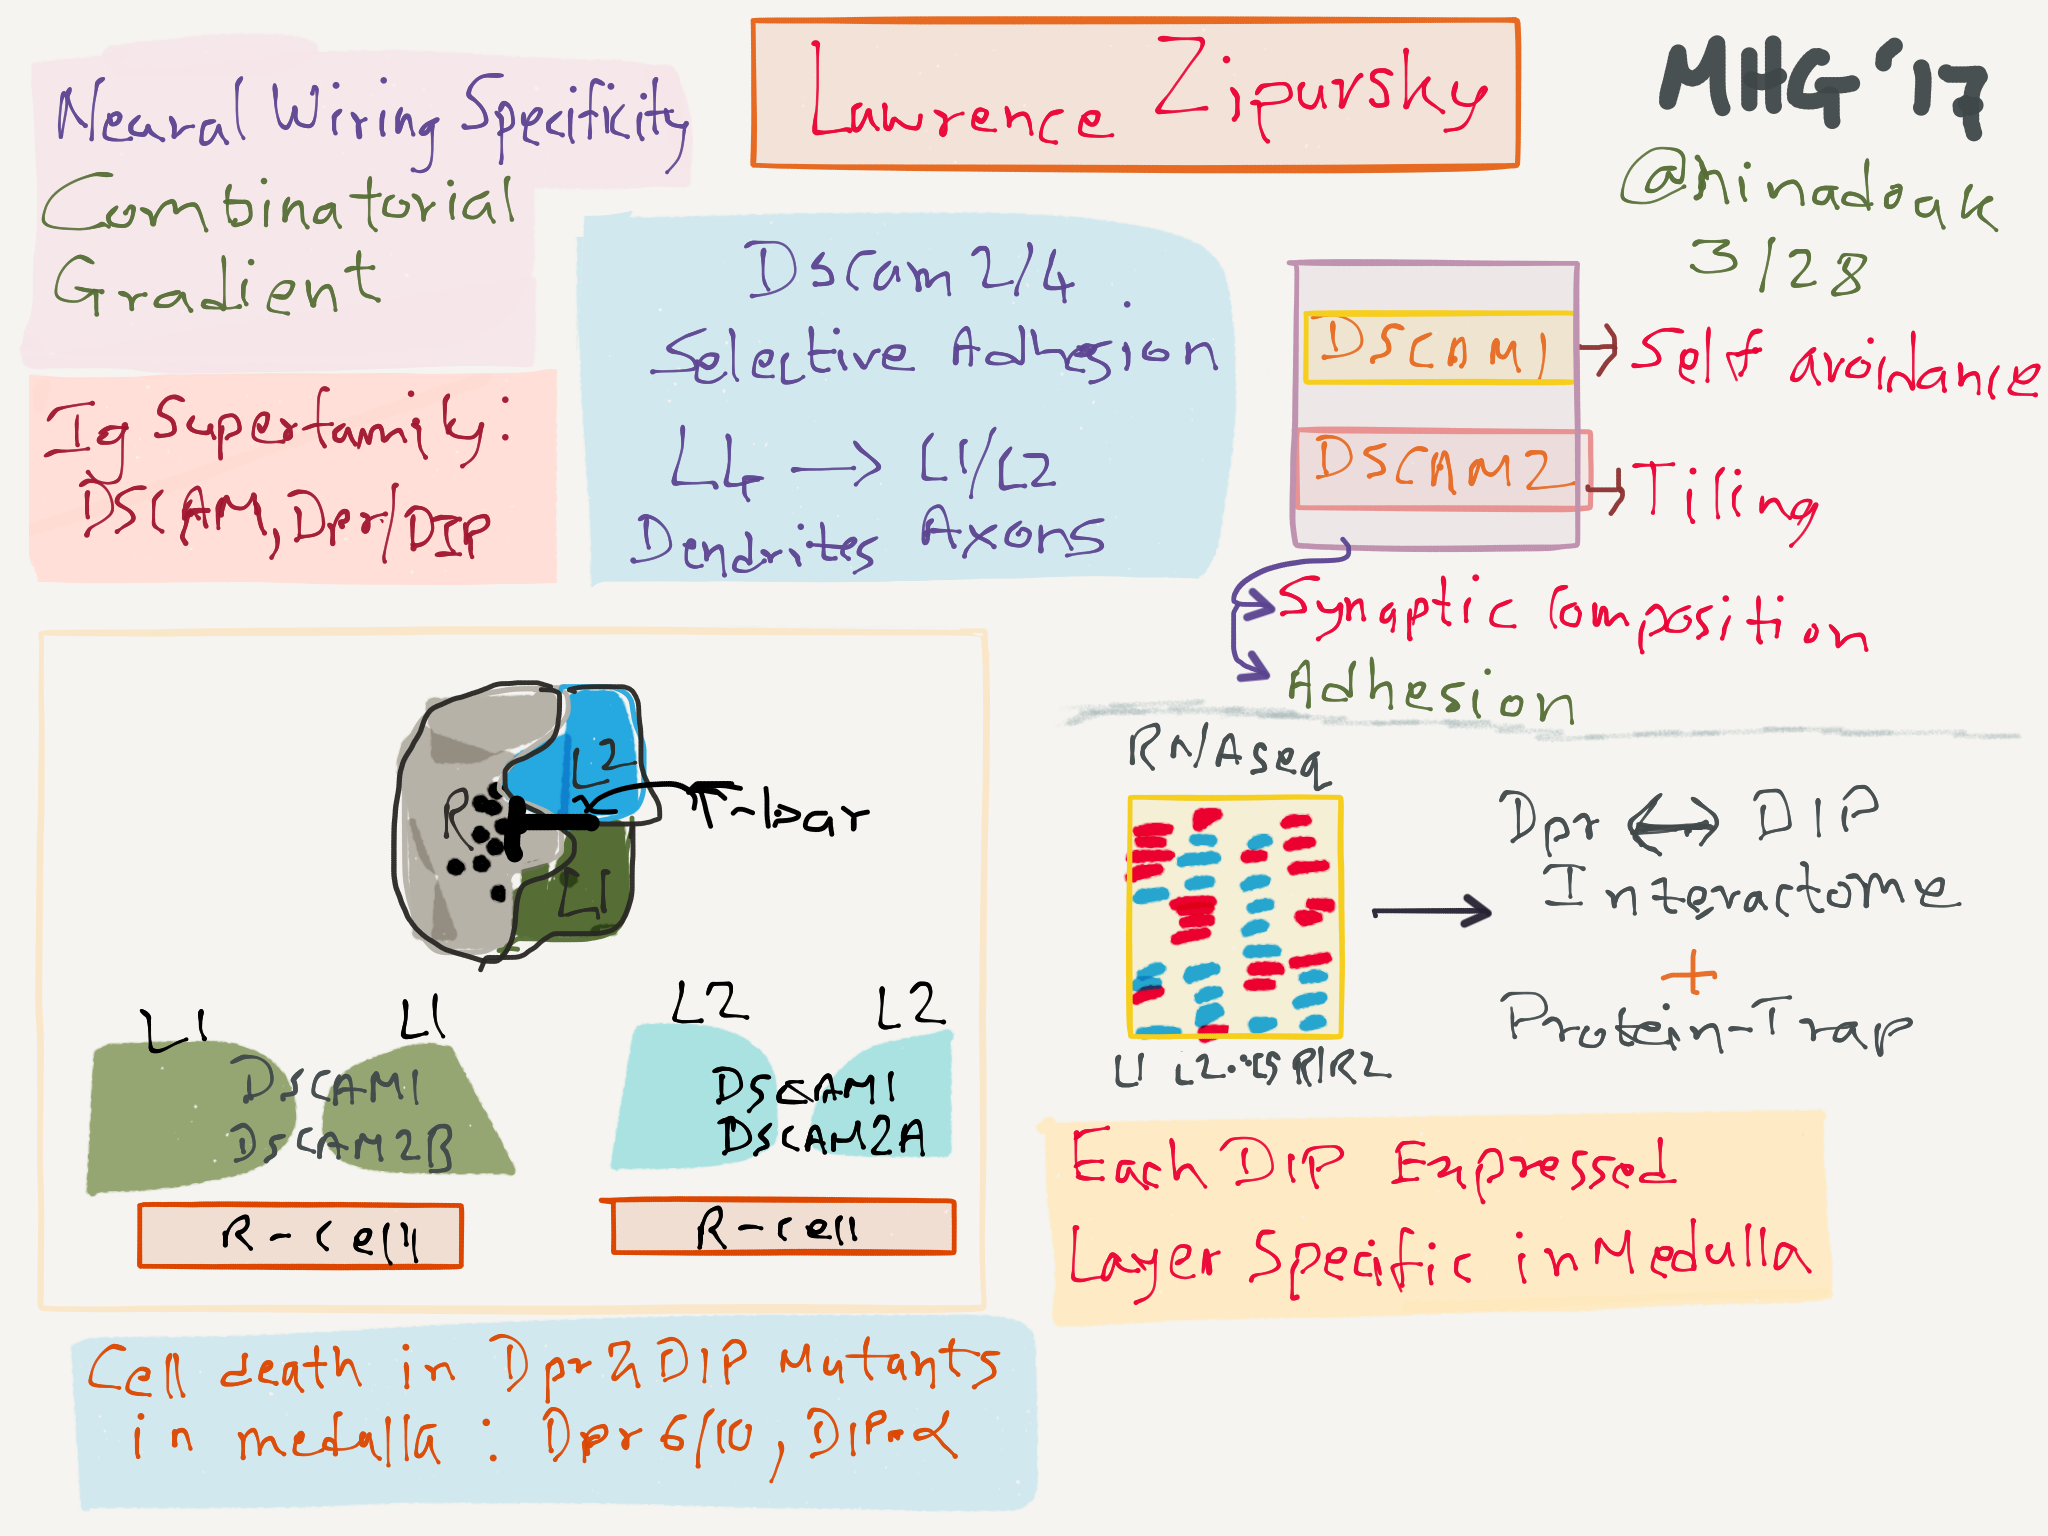 Lawrence Zipursky
MHG '17
@hinadoak
3/28
Neural Wiring Specificity
Combinatorial
Gradient
Ig Superfamily:
DSCAM, Dpr/DIP
Dscam 2/4
Selective Adhesion
L4 → L1/L2
Dendrites Axons
DSCAM1 → Self avoidance
DSCAM2 → Tiling
Synaptic Composition
Adhesion
R
L2
L1
T-bar
L1 L1
DSCAM1
DSCAM2B
R-Cell
L2 L2
DSCAM1
DSCAM2A
R-Cell
RNAseq
L1 L2..L5 R1R2
Dpr ↔ DIP
Interactome
+
Protein-Trap
Each DIP Expressed
Layer Specific in Medulla
Cell death in Dpr & DIP Mutants
in medulla: Dpr 6/10, DIP-α